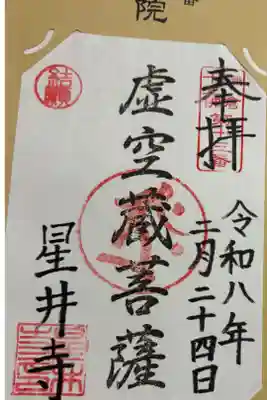 院
奉拝
令和八年
二月二十四日
虚空蔵菩薩
星井寺